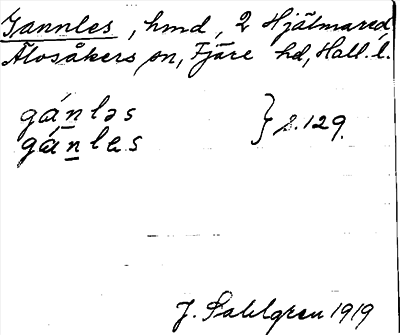 Gannles, hmd, 2 Hjälmared,
Älvsåkers sn, Fjäre hd, Hall. l.
gánləs
gánles } s. 129.
J. Sahlgren 1919